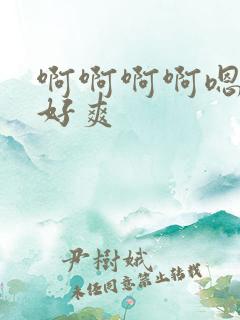 啊啊啊啊嗯
好爽
尹樹娥
未经同意禁止转载